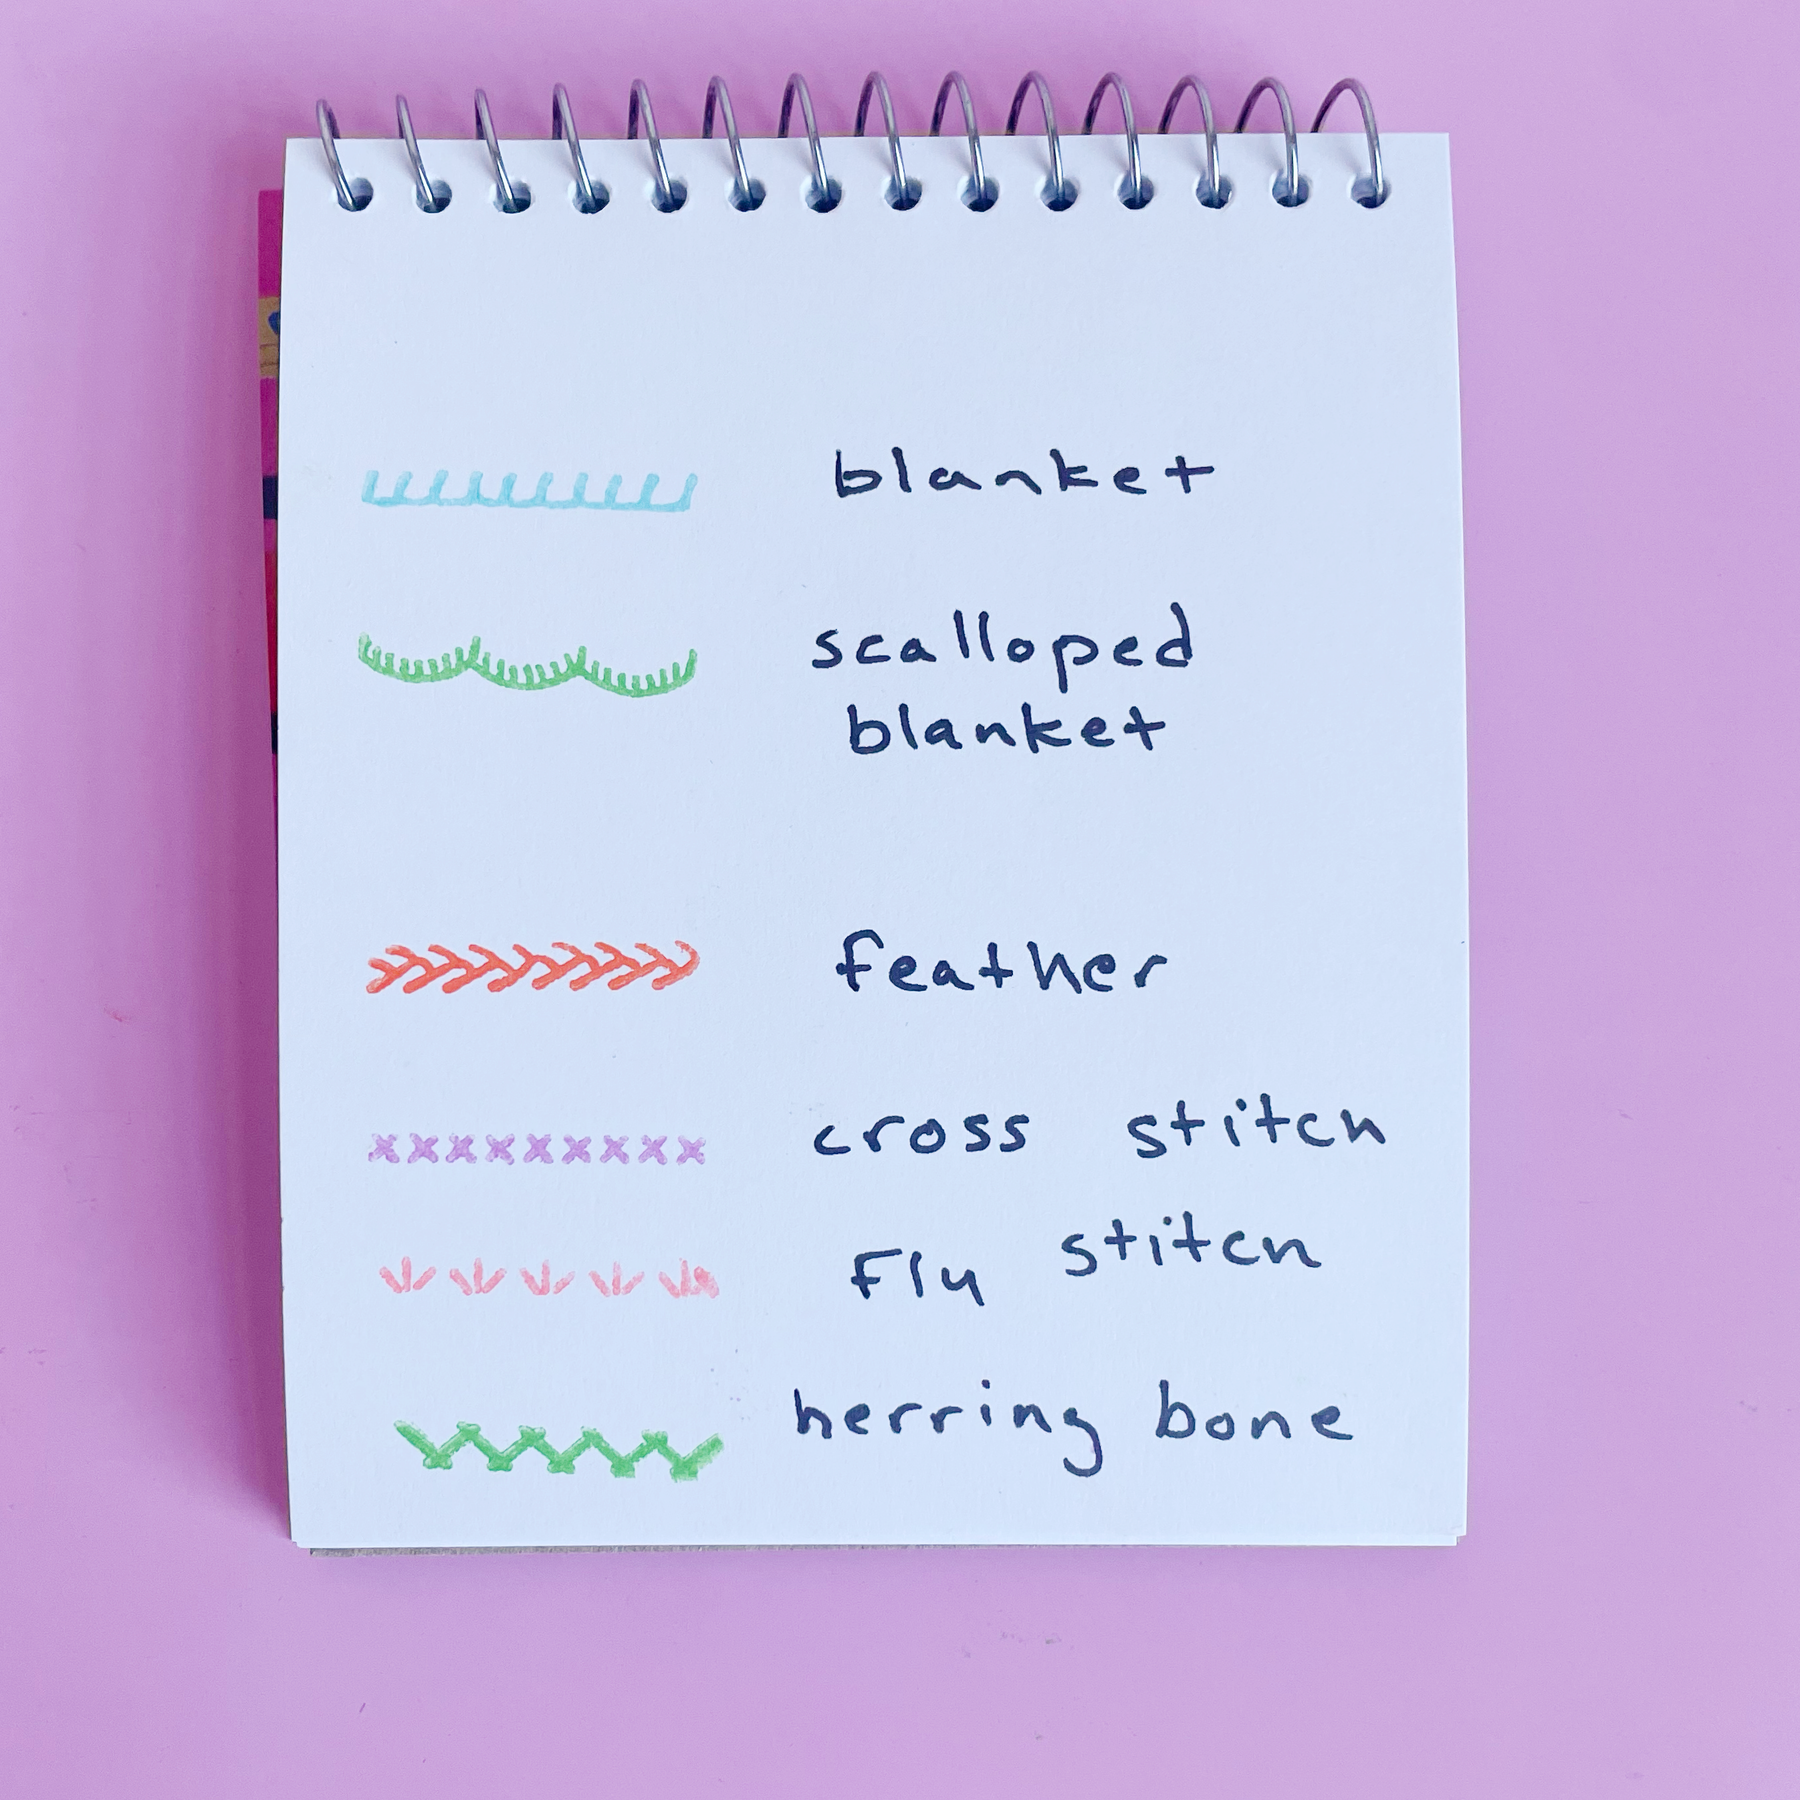 blanket
scalloped
blanket
feather
cross stitch
fly stitch
herring bone